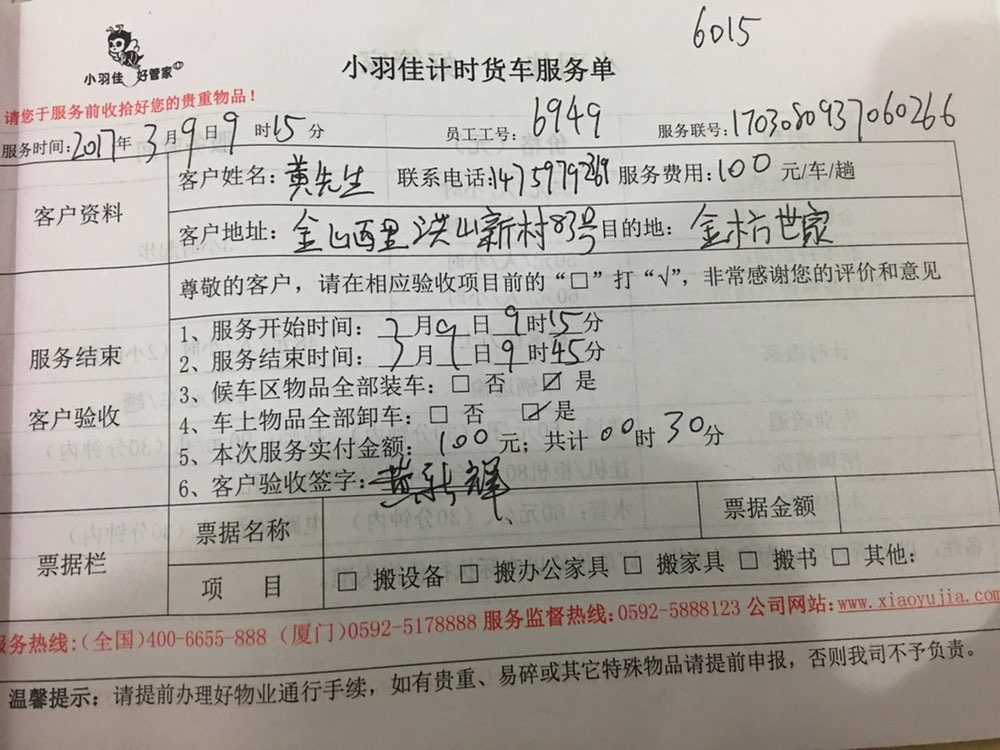 6015
小羽佳 好管家
小羽佳计时货车服务单
请您于服务前收拾好您的贵重物品！
服务时间：2017年3月9日9时15分 员工工号：6949 服务联号：1703080937060266
客户资料
客户姓名：黄先生 联系电话：14759792369 服务费用：100元/车/趟
客户地址：金山西里洪山新村83号 目的地：金枋世家
尊敬的客户，请在相应验收项目前的“□”打“√”，非常感谢您的评价和意见
服务结束
客户验收
1、服务开始时间：3月9日9时15分
2、服务结束时间：3月9日9时45分
3、候车区物品全部装车：□ 否 ☑ 是
4、车上物品全部卸车：□ 否 ☑ 是
5、本次服务实付金额：100元；共计00时30分
6、客户验收签字：黄新辉
票据栏
票据名称 票据金额
项 目 □ 搬设备 □ 搬办公家具 □ 搬家具 □ 搬书 □ 其他：
服务热线：(全国)400-6655-888 (厦门)0592-5178888 服务监督热线：0592-5888123 公司网站：www.xiaoyujia.com
温馨提示：请提前办理好物业通行手续，如有贵重、易碎或其它特殊物品请提前申报，否则我司不予负责。